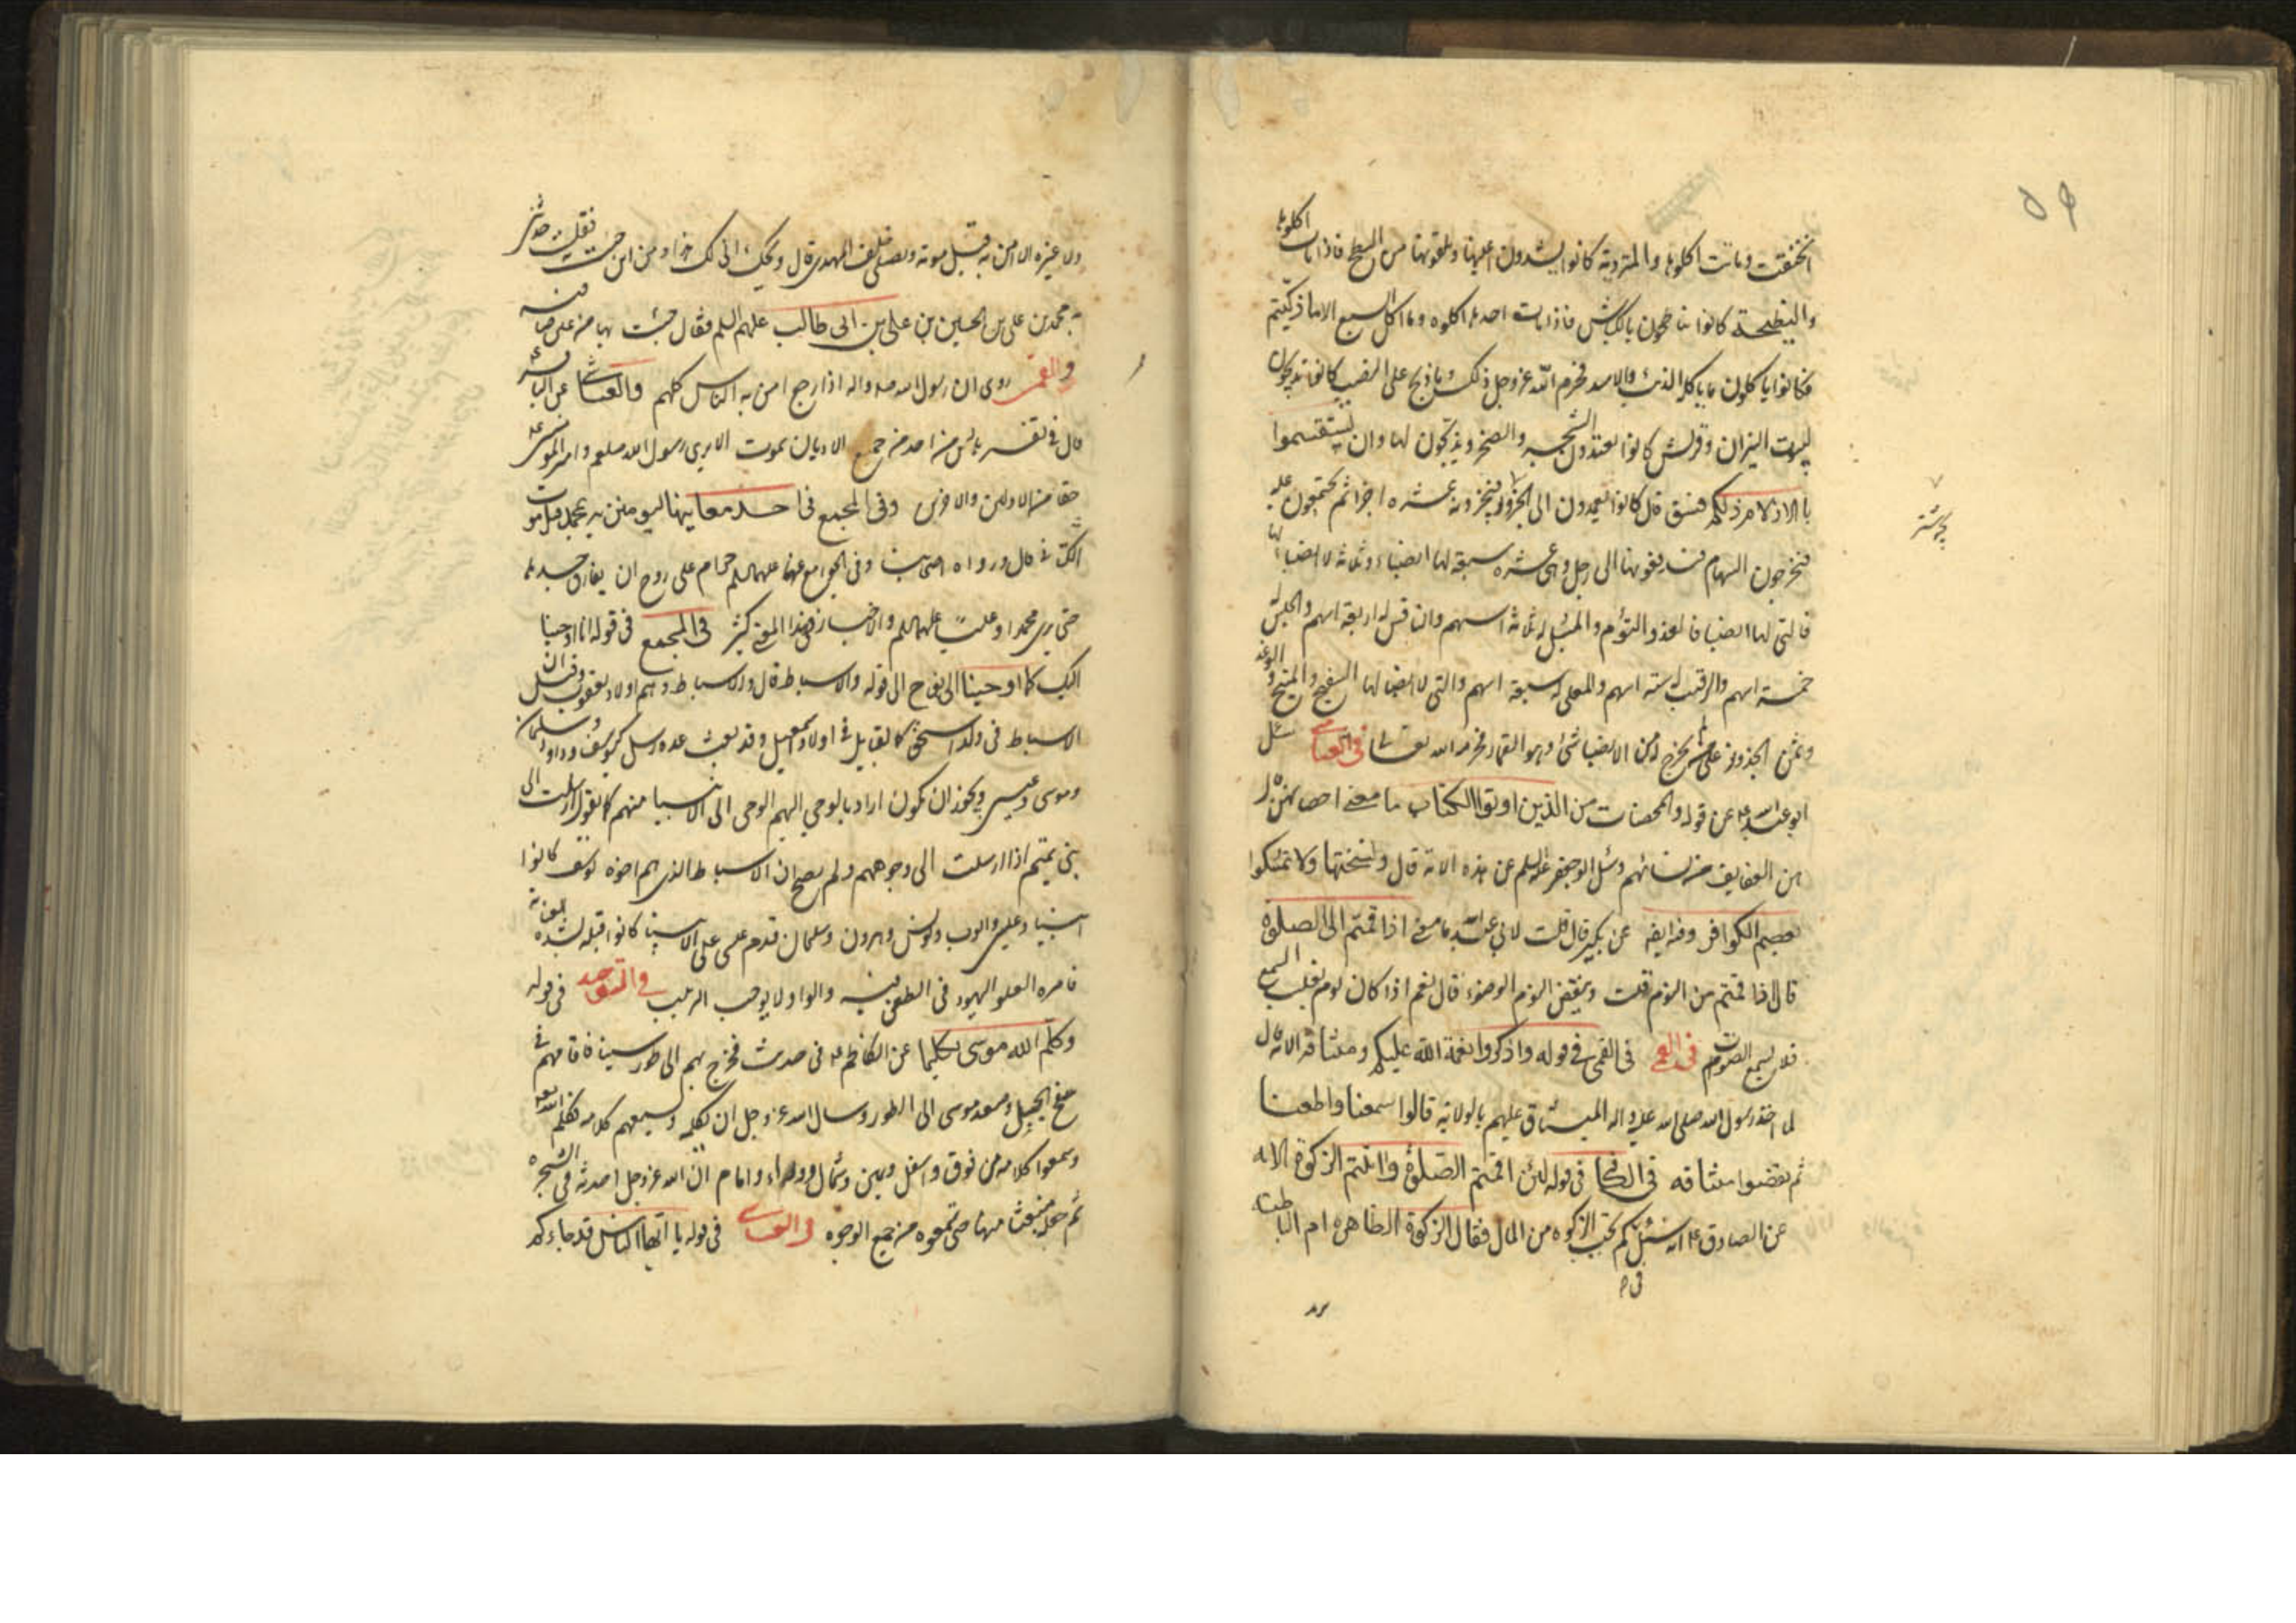 ٥٩
انخنقت وماتت اكلوها والمتردية كانوا يشدون اعينها ويلقونها من السطح فاذا ماتت اكلوها
والنطيحة كانوا يناطحون بالكباش فاذا ماتت احدها اكلوه وما اكل السبع الا ما ذكيتم
فكانوا ياكلون ما ياكله الذئب والاسد فحرم الله عز وجل ذلك وما ذبح على النصب كانوا يذبحون
لبيوت النيران وقريش كانوا يعبدون الشجر والصخر ويذبحون لها وان تستقسموا
بالازلام ذلكم فسق قال كانوا يعمدون الى الجزور فيجزونه عشره اجزا ثم يجتمعون عليه
فيخرجون السهام فيدفعونها الى رجل وهى عشره سبعة لها انصباء وثلثه لا انصبا لها
فالتى لها انصبا فالفذ والتوأم والمسبل له ثلثة اسهم والنافس له اربعة اسهم والحلس له
خمسة اسهم والرقيب له سته اسهم والمعلى له سبعة اسهم والتى لا انصبا لها السفيح والمنيح والوغد
وثمن الجزور على من لم يخرج له من الانصبا شئ وهو القمار فحرمه الله تعالى فى العياشى سئل
ابو عبد الله ع عن قوله والمحصنات من الذين اوتوا الكتاب ما معنى احصانهن قال
هن العفايف من نسائهم وسئل ابو جعفر عليه السلم عن هذه الاية قال نسختها ولا تمسكوا
بعصم الكوافر وفيه ايضا عن بكير قال قلت لابي عبد الله ما معنى اذا قمتم الى الصلوة
قال اذا قمتم من النوم قلت وينقض النوم الوضوء قال نعم اذا كان نوم يغلب السمع
فلا يسمع الصوت فى القمى فى قوله واذكروا نعمة الله عليكم وميثاقه الاية قال
لما اخذ رسول الله صلى الله عليه واله الميثاق عليهم بالولاية قالوا سمعنا واطعنا
ثم نقضوا ميثاقه فى الكافى فى قوله لئن اقمتم الصلوة واتيتم الزكوة الايه
عن الصادق ع انه سئل كم تجب الزكوه من المال فقال الزكوة الظاهره ام الباطنه
ولا غيره الا امن به قبل موته ويصلى خلف المهدى قال ويحك انى لك هذا ومن اين جئت به فقلت حدثنى
به محمد بن على بن الحسين بن على بن ابى طالب عليهم السلم فقال جئت بها من عين صافيه
والقمى روى ان رسول الله صلى الله واله اذا رجع امن به الناس كلهم والعياشى عن الباقر ع
قال فى تفسيرها ليس من احد من جميع الاديان يموت الا يرى رسول الله صلعم وامير المؤمنين ع
حقا من الاولين والاخرين وفى المجمع فى احد معانيها ليؤمنن بمحمد قبل موت
الكتابى قال ورواه اصحابنا وفى الجوامع عنهما عليهما السلم حرام على روح ان يفارق جسدها
حتى يرى محمدا وعليا عليهما السلم والاخبار فى هذا المعنى كثير فى المجمع فى قوله انا اوحينا
اليك كما اوحينا الى نوح الى قوله والاسباط قال والاسباط وهم اولاد يعقوب وقيل ان
الاسباط فى ولد اسحق كالقبايل فى اولاد اسمعيل وقد بعث عدة رسل كيوسف وداود وسليمان
وموسى وعيسى ويجوز ان يكون اراد بالوحي اليهم الوحى الى الانبيا منهم كما يقول ارسلت الى
بنى تميم اذا ارسلت الى وجوههم ولم يصح ان الاسباط الذى هم اخوة يوسف كانوا
انبيا وعيسى وايوب ويونس وهرون وسليمان قدم عيسى على الانبيا كانوا قبله لشده
فى الطعن فيه والواو لا يوجب الترتيب فى التوحيد فى قوله
وكلم الله موسى تكليما عن الكاظم ع فى حديث فخرج بهم الى طور سينا فاقامهم فى
سفح الجبل وصعد موسى الى الطور وسال الله عز وجل ان يكلمه ويسمعهم كلامه فكلمه الله
وسمعوا كلامه من فوق واسفل ويمين وشمال ووراء وامام ان الله عز وجل احدثه فى الشجرة
ثم جعله منبعثا منها حتى سمعوه من جميع الوجوه والعياشى فى قوله يا ايها الناس قد جاءكم